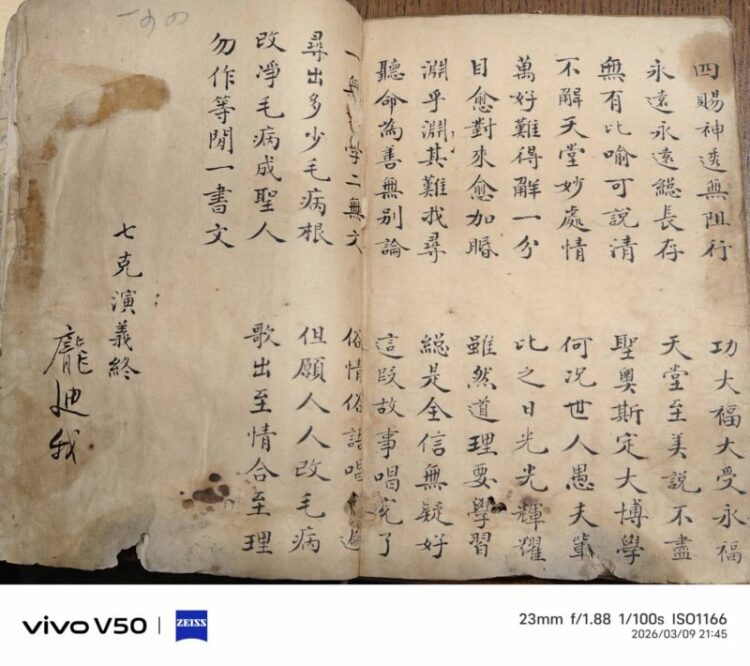 四賜神透無阻行 功大福大受永福
永遠永遠緫長存 天堂至美說不盡
無有比喻可說清 聖奧斯定大博學
不解天堂妙處情 何况世人愚夫輩
萬好難得解一分 比之日光光輝耀
目愈對來愈加睧 雖然道理要學習
淵乎淵其難我尋 緫是全信無疑好
聽命為善無別論 這段故事唱完了
一無字二無文 俗情俗語唱過
尋出多少毛病根 但願人人改毛病
改凈毛病成聖人 歌出至情合至理
勿作等閒一書文
七克演義終
龐迪我
vivo V50 | ZEISS
23mm f/1.88 1/100s ISO1166
2026/03/09 21:45